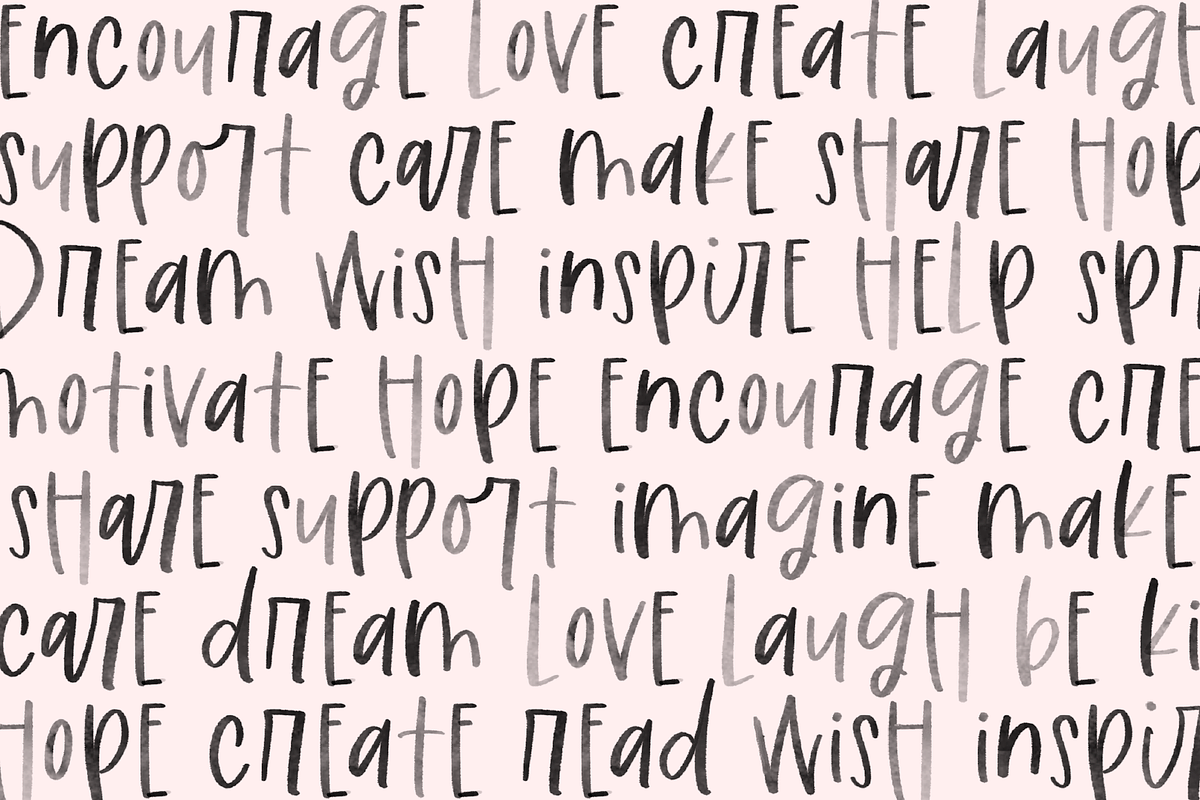 Encourage Love create Laugh
support care make sHare Hop
Dream WisH inspire HELp spr
motivate Hope Encourage cre
sHare support imagine make
care dream Love LaugH bE ki
Hope create read WisH inspir